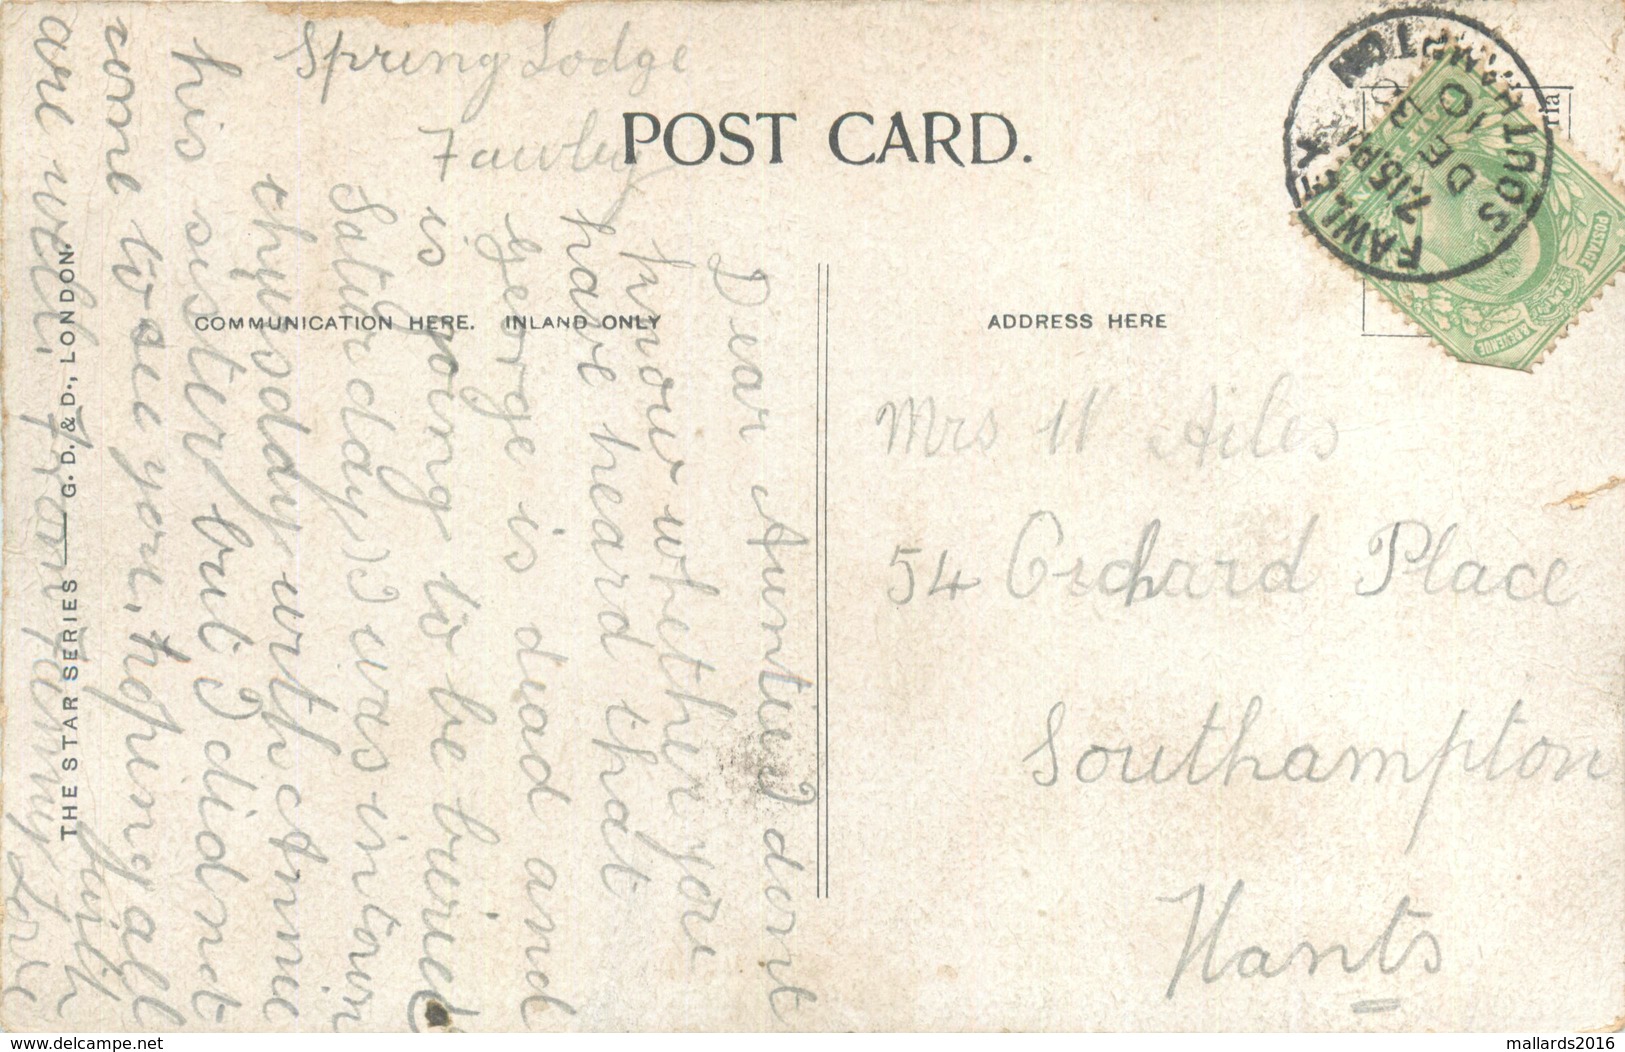 Spring Lodge
Fawley
POST CARD.
COMMUNICATION HERE. INLAND ONLY
ADDRESS HERE
THE STAR SERIES — G. D. & D., LONDON.
Dear Auntie I dont
know whether you
have heard that
George is dead and
is going to be buried
Saturday) I was in town
thursday with Annie
his sister but I did not
come to see you, hoping all
are well. From Fanny with
Love
Mrs W Ailes
54 Orchard Place
Southampton
Hants
FAWLEY
SOUTHAMPTON
7.15 PM
DE 10
POSTAGE
& REVENUE
mallards2016
www.delcampe.net